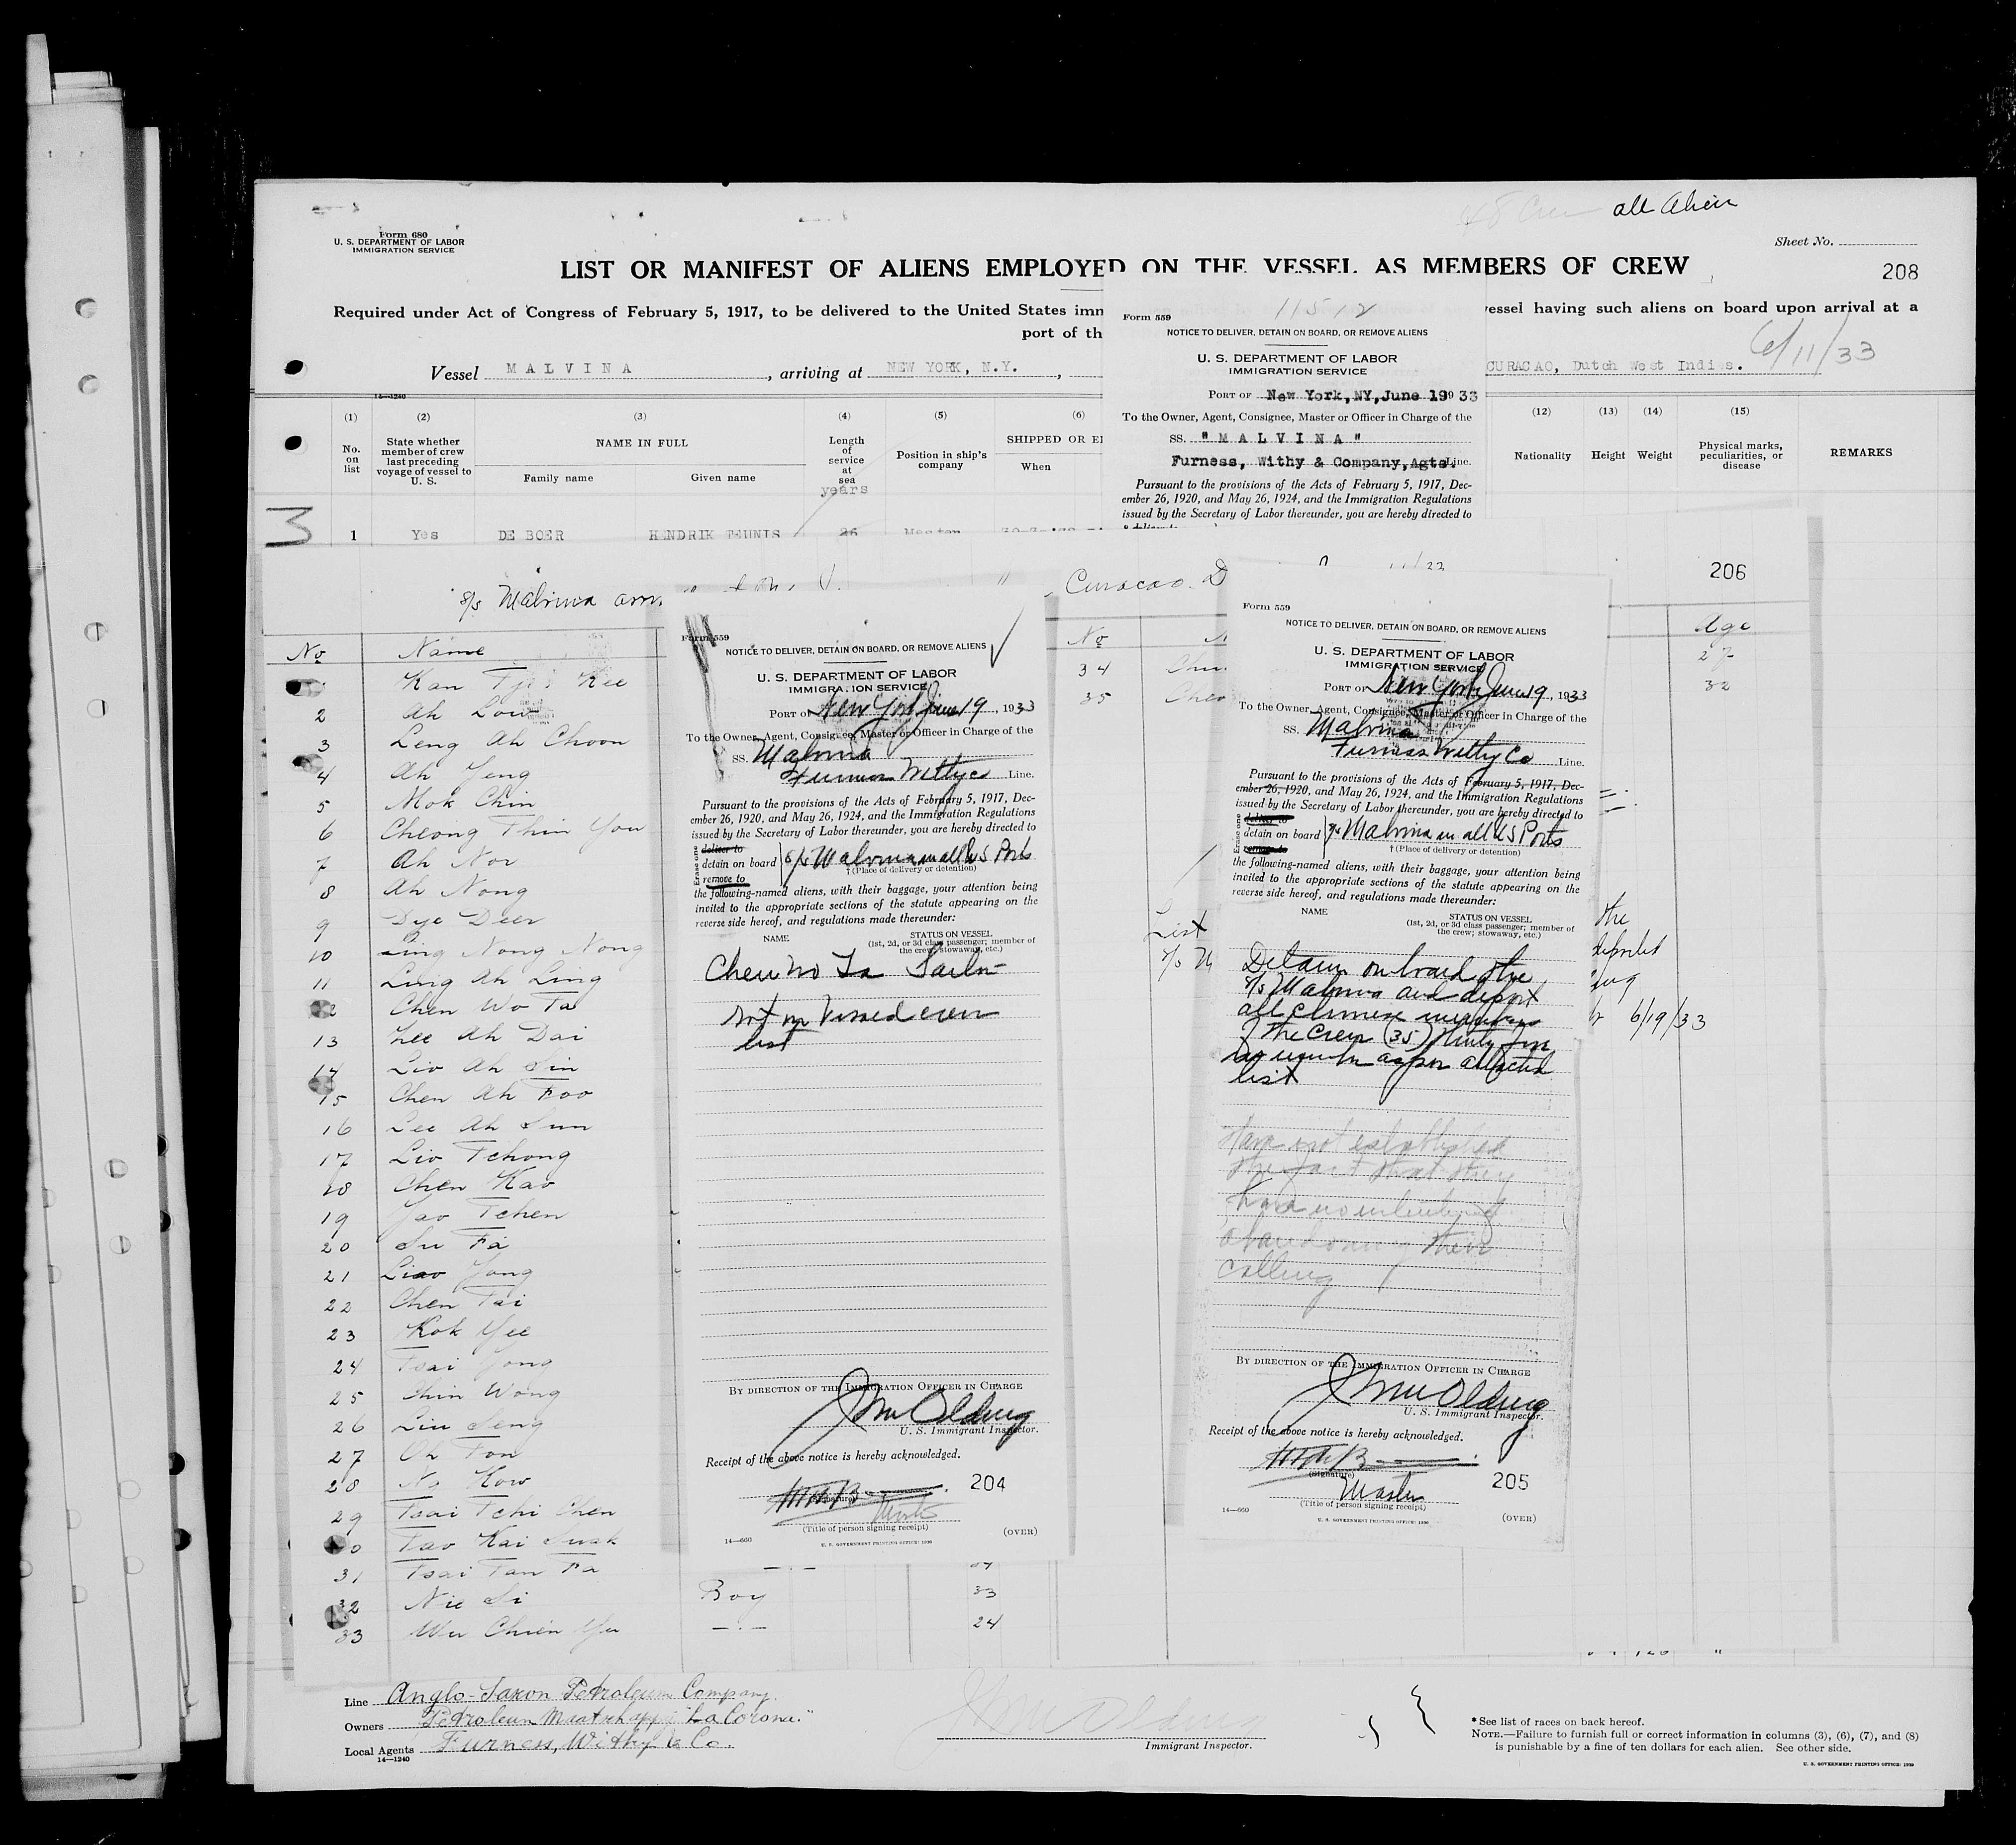 all Alien
Form 680
U. S. DEPARTMENT OF LABOR
IMMIGRATION SERVICE
Sheet No.
LIST OR MANIFEST OF ALIENS EMPLOYED ON THE VESSEL AS MEMBERS OF CREW
208
Required under Act of Congress of February 5, 1917, to be delivered to the United States imm
vessel having such aliens on board upon arrival at a
port of th
6/11/33
Vessel MALVINA, arriving at NEW YORK, N.Y.,
CURACAO, Dutch West Indies.
14—1240
(1) (2) (3) (4) (5) (6) (12) (13) (14) (15)
No. on list
State whether member of crew last preceding voyage of vessel to U. S.
NAME IN FULL
Family name
Given name
Length of service at sea
years
Position in ship's company
SHIPPED OR E
When
Nationality
Height
Weight
Physical marks, peculiarities, or disease
REMARKS
1 Yes DE BOER HENDRIK TEUNIS 26 Master
11512
Form 559
NOTICE TO DELIVER, DETAIN ON BOARD, OR REMOVE ALIENS
U. S. DEPARTMENT OF LABOR
IMMIGRATION SERVICE
PORT OF New York, NY, June 19 33
To the Owner, Agent, Consignee, Master or Officer in Charge of the
SS. "MALVINA"
Furness, Withy & Company, Agts. Line.
Pursuant to the provisions of the Acts of February 5, 1917, Dec-
ember 26, 1920, and May 26, 1924, and the Immigration Regulations
issued by the Secretary of Labor thereunder, you are hereby directed to
206
S/S Malvina
Curacao. D
No Name
Kan Kee
2 Ah Low
3 Leng Ah Choon
4 Ah Yeng
5 Mok Chin
6 Cheong Thin You
7 Ah Nor
8 Ah Nong
9 Dye Deer
10 Ling Nong Nong
11 Ling Ah Ling
12 Chen Wo Ta
13 Lee Ah Dai
14 Liv Ah Sin
15 Chen Ah Foo
16 Lee Ah Sun
17 Liv Tchong
18 Chen Kao
19 Yao Tchen
20 Su Fa
21 Liao Yong
22 Chen Tai
23 Kok Yee
24 Tsai Yong
25 Chin Wong
26 Liu Seng
27 Oh Fon
28 No Kow
29 Tsai Tchi Chen
30 Tao Kai Suak
31 Tsai Tan Fa
32 Nie Si Boy 33
33 Wu Chien Yu —.— 24
No
34
35
Age
27
32
List
the
6/19/33
Form 559
NOTICE TO DELIVER, DETAIN ON BOARD, OR REMOVE ALIENS
U. S. DEPARTMENT OF LABOR
IMMIGRATION SERVICE
PORT OF New York June 19, 1933
To the Owner, Agent, Consignee, Master or Officer in Charge of the
SS. Malvina
Furness Withy Co Line.
Pursuant to the provisions of the Acts of February 5, 1917, Dec-
ember 26, 1920, and May 26, 1924, and the Immigration Regulations
issued by the Secretary of Labor thereunder, you are hereby directed to
Erase one
deliver to
detain on board S/S Malvina in all U S Ports
remove to
† (Place of delivery or detention)
the following-named aliens, with their baggage, your attention being
invited to the appropriate sections of the statute appearing on the
reverse side hereof, and regulations made thereunder:
NAME
STATUS ON VESSEL
(1st, 2d, or 3d class passenger; member of
the crew; stowaway, etc.)
Chen Wo Ta Sailor
not on Vissed crew
list
BY DIRECTION OF THE IMMIGRATION OFFICER IN CHARGE
U. S. Immigrant Inspector.
Receipt of the above notice is hereby acknowledged.
(Signature)
204
(Title of person signing receipt)
14—660
U. S. GOVERNMENT PRINTING OFFICE: 1930
(OVER)
Form 559
NOTICE TO DELIVER, DETAIN ON BOARD, OR REMOVE ALIENS
U. S. DEPARTMENT OF LABOR
IMMIGRATION SERVICE
PORT OF New York June 19, 1933
To the Owner, Agent, Consignee, Master or Officer in Charge of the
SS. Malvina
Furness Withy Co Line.
Pursuant to the provisions of the Acts of February 5, 1917, Dec-
ember 26, 1920, and May 26, 1924, and the Immigration Regulations
issued by the Secretary of Labor thereunder, you are hereby directed to
Erase one
deliver to
detain on board S/S Malvina in all U S Ports
remove to
† (Place of delivery or detention)
the following-named aliens, with their baggage, your attention being
invited to the appropriate sections of the statute appearing on the
reverse side hereof, and regulations made thereunder:
NAME
STATUS ON VESSEL
(1st, 2d, or 3d class passenger; member of
the crew; stowaway, etc.)
Detain on board the
S/S Malvina and deport
all Chinese members
of the Crew (35) thirty five
in number as per attached
list
Have not established
the fact that they
have no intention of
abandoning their
calling
BY DIRECTION OF THE IMMIGRATION OFFICER IN CHARGE
U. S. Immigrant Inspector.
Receipt of the above notice is hereby acknowledged.
(Signature)
Master
205
(Title of person signing receipt)
14—660
U. S. GOVERNMENT PRINTING OFFICE: 1930
(OVER)
Line Anglo-Saxon Petroleum Company.
Owners Petroleum Maatschappij "La Corona."
Local Agents Furness, Withy & Co.
14—1240
Immigrant Inspector.
* See list of races on back hereof.
NOTE.—Failure to furnish full or correct information in columns (3), (6), (7), and (8)
is punishable by a fine of ten dollars for each alien. See other side.
U. S. GOVERNMENT PRINTING OFFICE: 1929